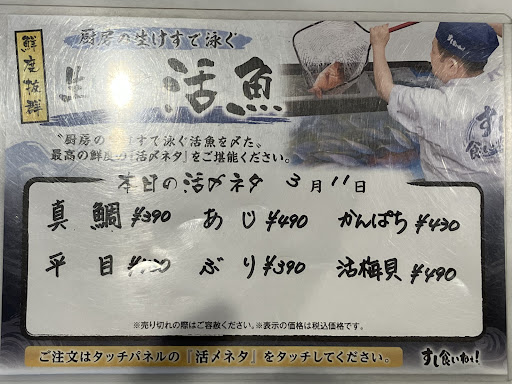 鮮度抜群
厨房の生けすで泳ぐ
生 活魚
すし食いねぇ!
"厨房の すで泳ぐ活魚を〆た"
最高の鮮度の「活〆ネタ」をご堪能ください。
本日の活〆ネタ 3月11日
真鯛¥390 あじ¥490 かんぱち¥430
平目 ぶり¥390 活梅貝¥490
※売り切れの際はご容赦ください。※表示の価格は税込価格です。
ご注文はタッチパネルの「活〆ネタ」をタッチしてください。 すし食いねぇ!